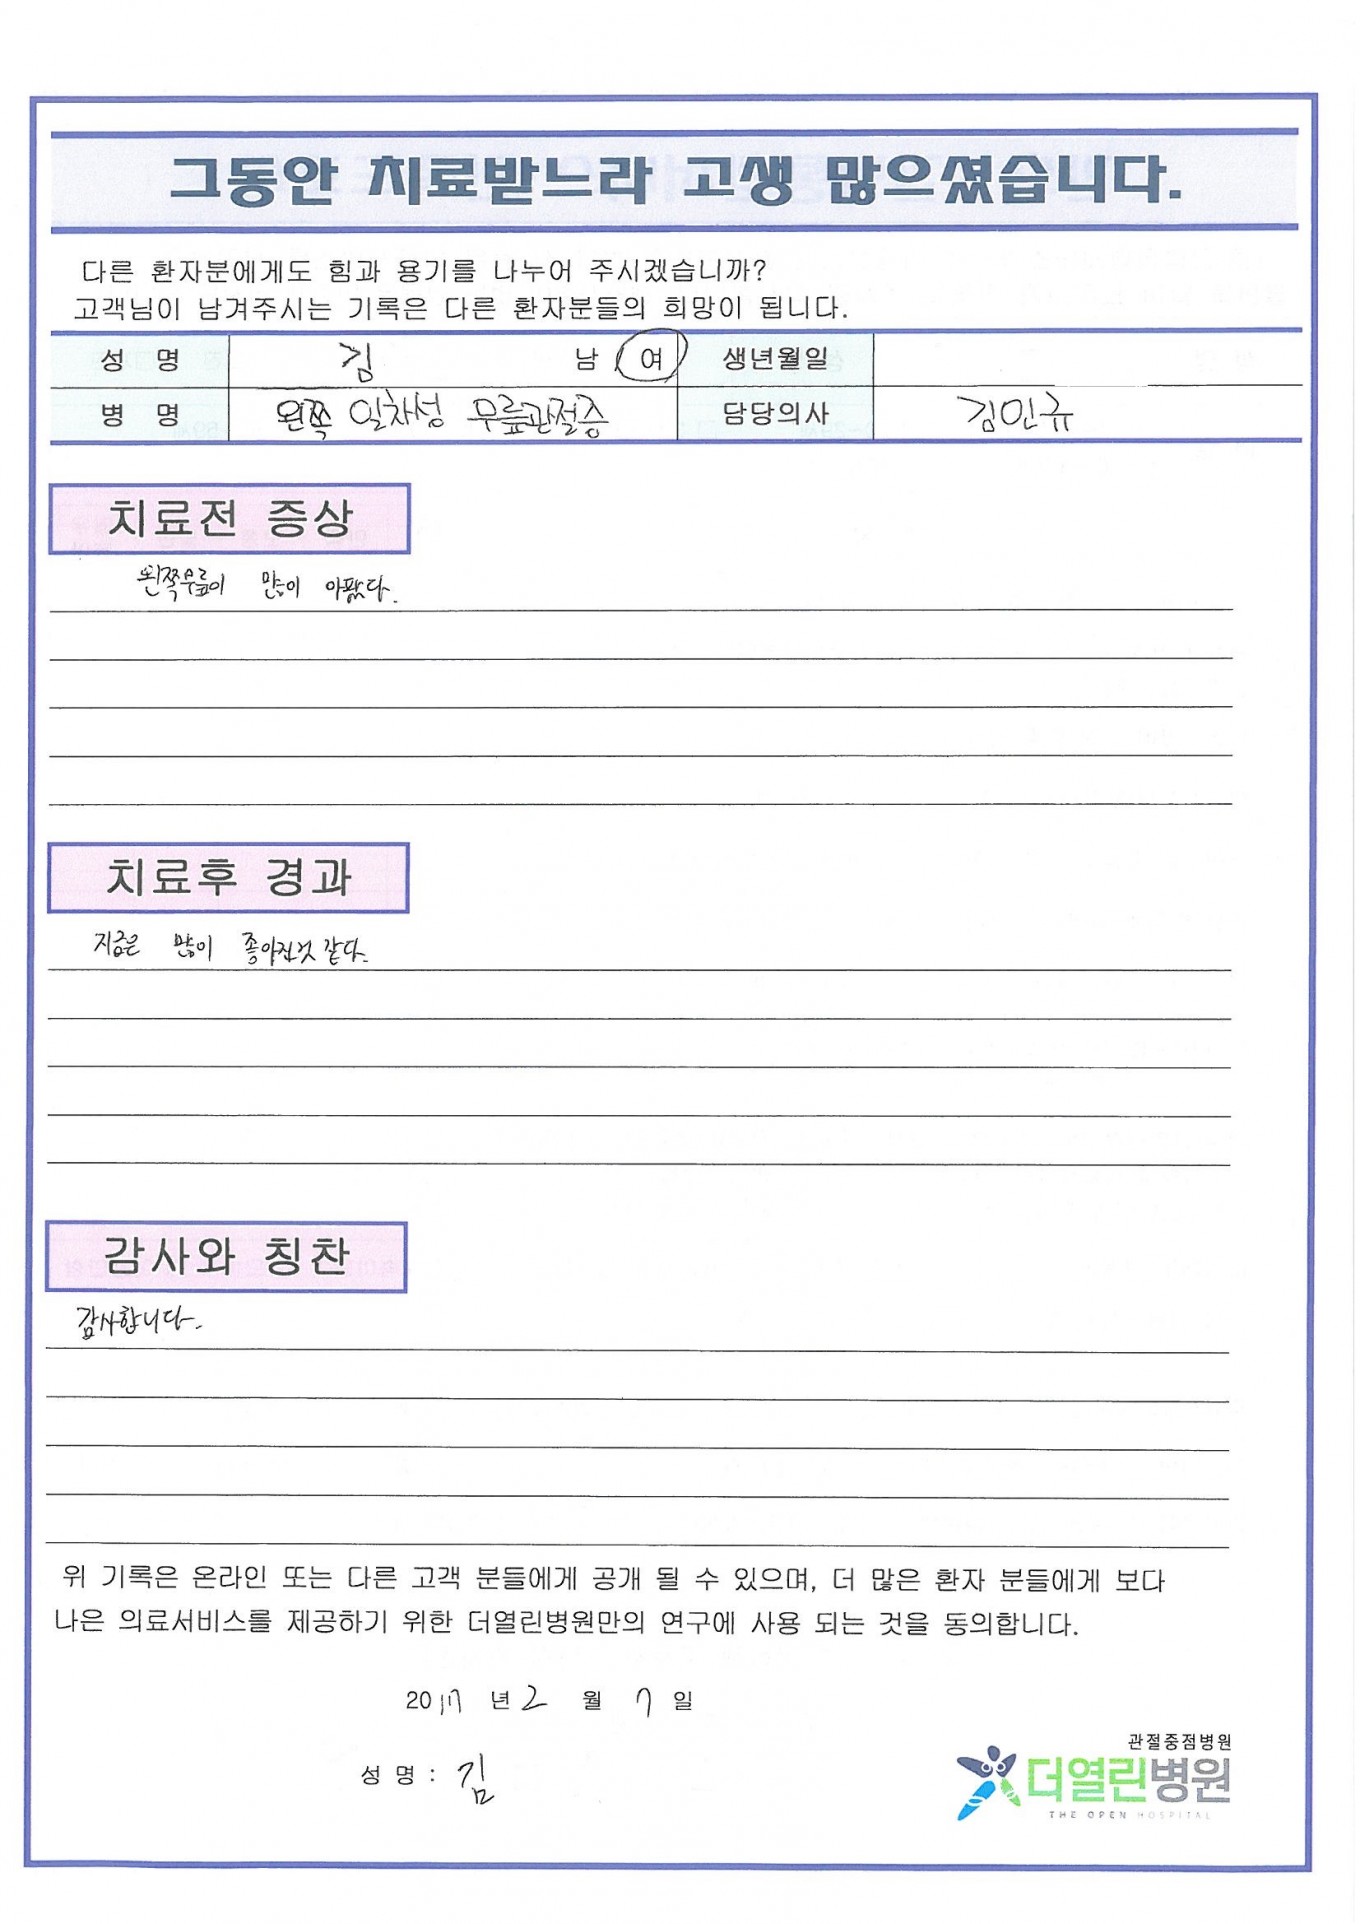 그동안 치료받느라 고생 많으셨습니다.
다른 환자분에게도 힘과 용기를 나누어 주시겠습니까?
고객님이 남겨주시는 기록은 다른 환자분들의 희망이 됩니다.
성 명 김 남 여 생년월일
병 명 왼쪽 일차성 무릎관절증 담당의사 김민규
치료전 증상
왼쪽무릎이 많이 아팠다.
치료후 경과
지금은 많이 좋아진것 같다.
감사와 칭찬
감사합니다.
위 기록은 온라인 또는 다른 고객 분들에게 공개 될 수 있으며, 더 많은 환자 분들에게 보다
나은 의료서비스를 제공하기 위한 더열린병원만의 연구에 사용 되는 것을 동의합니다.
2017 년 2 월 7 일
성 명 : 김
관절중점병원
더열린병원
THE OPEN HOSPITAL